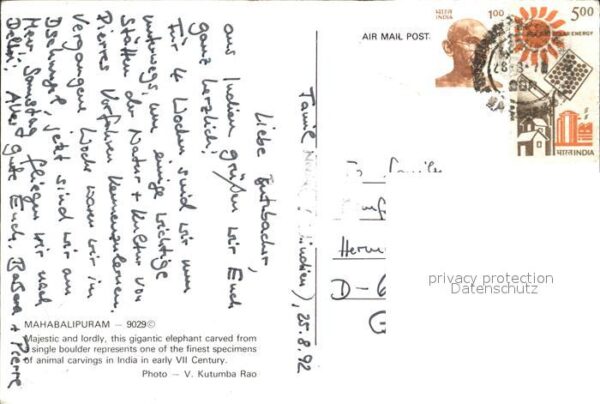 Tamil Nadu (Südindien), 25.8.92
Liebe
aus Indien grüßen wir Euch
ganz herzlich!
Für 4 Wochen sind wir nun
unterwegs, um einige wichtige
Stätten der Natur + Kultur von
Pierres Vorfahren kennenzulernen.
Vergangene Woche waren wir im
Dschungel, jetzt sind wir am
Meer, Samstag fliegen wir nach
Delhi. Alles gute Euch, Barbara + Pierre
MAHABALIPURAM — 9029©
Majestic and lordly, this gigantic elephant carved from
a single boulder represents one of the finest specimens
of animal carvings in India in early VII Century.
Photo — V. Kutumba Rao
AIR MAIL POST
भारत
INDIA
1.00
5.00
SOLAR ENERGY
भारत INDIA
D-6
privacy protection
Datenschutz